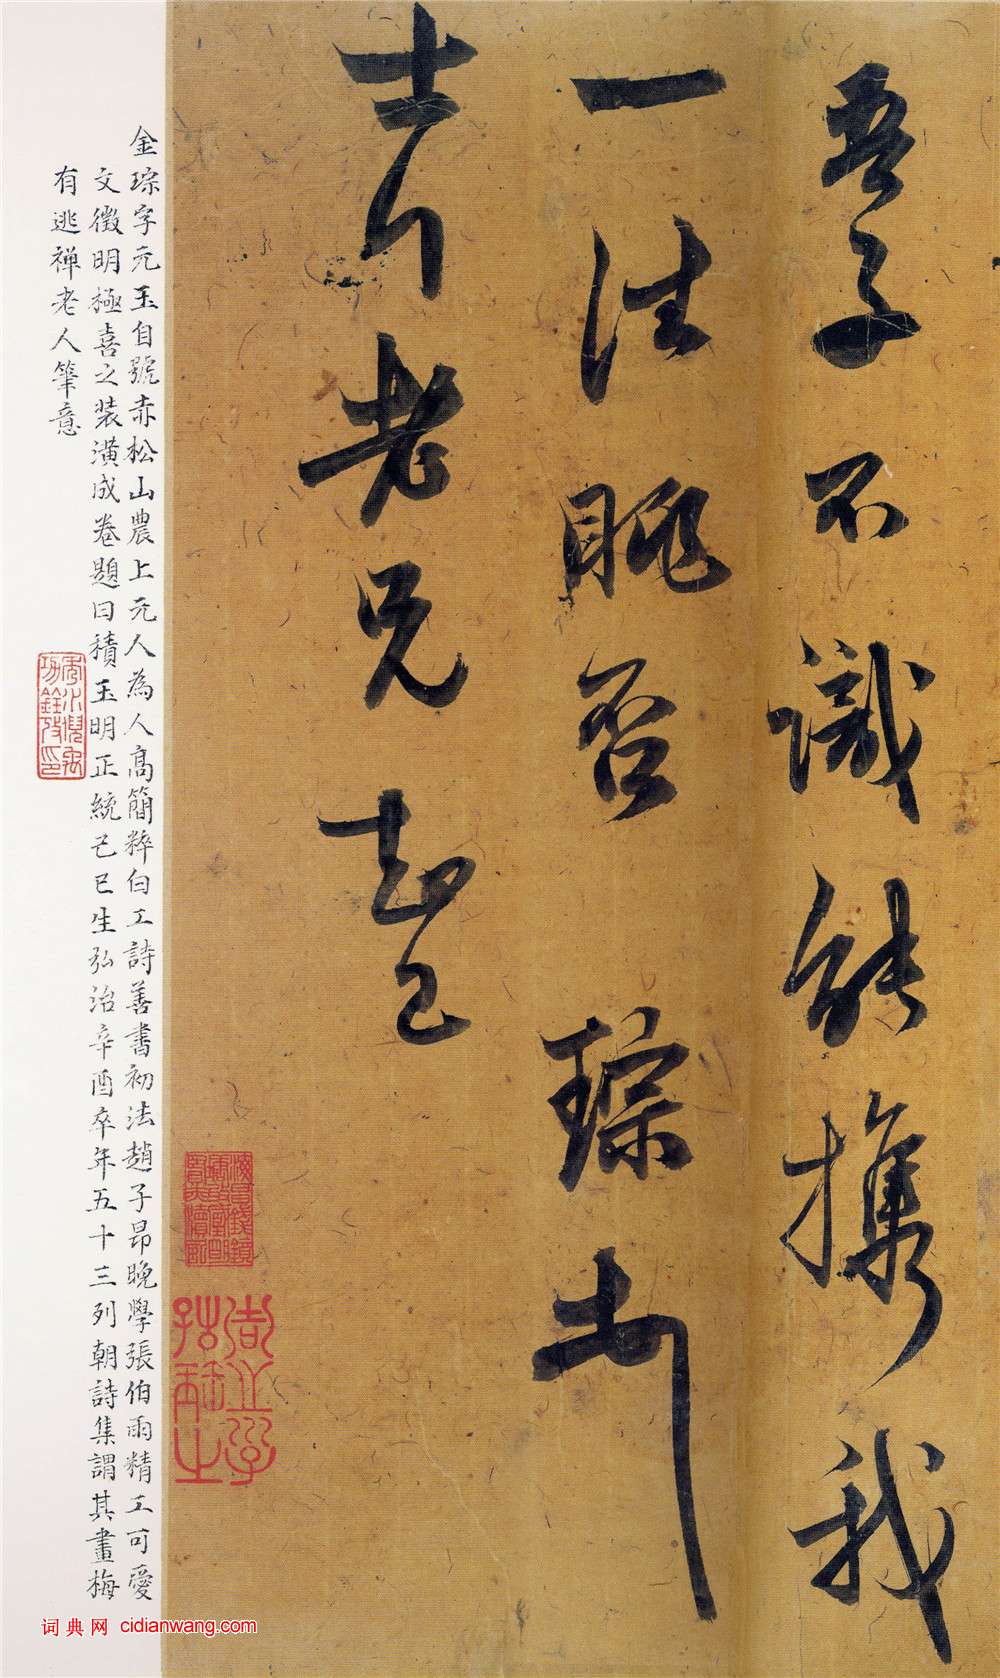 吾子不識能携我
一往眺否 琮書
老兄
金琮字元玉自號赤松山農上元人為人高簡粹白工詩善書初法趙子昂晚學張伯雨精工可愛
文徵明極喜之装潢成卷題曰積玉明正統己巳生弘治辛酉卒年五十三列朝詩集謂其畫梅
有逃禅老人筆意
词典网 cidianwang.com